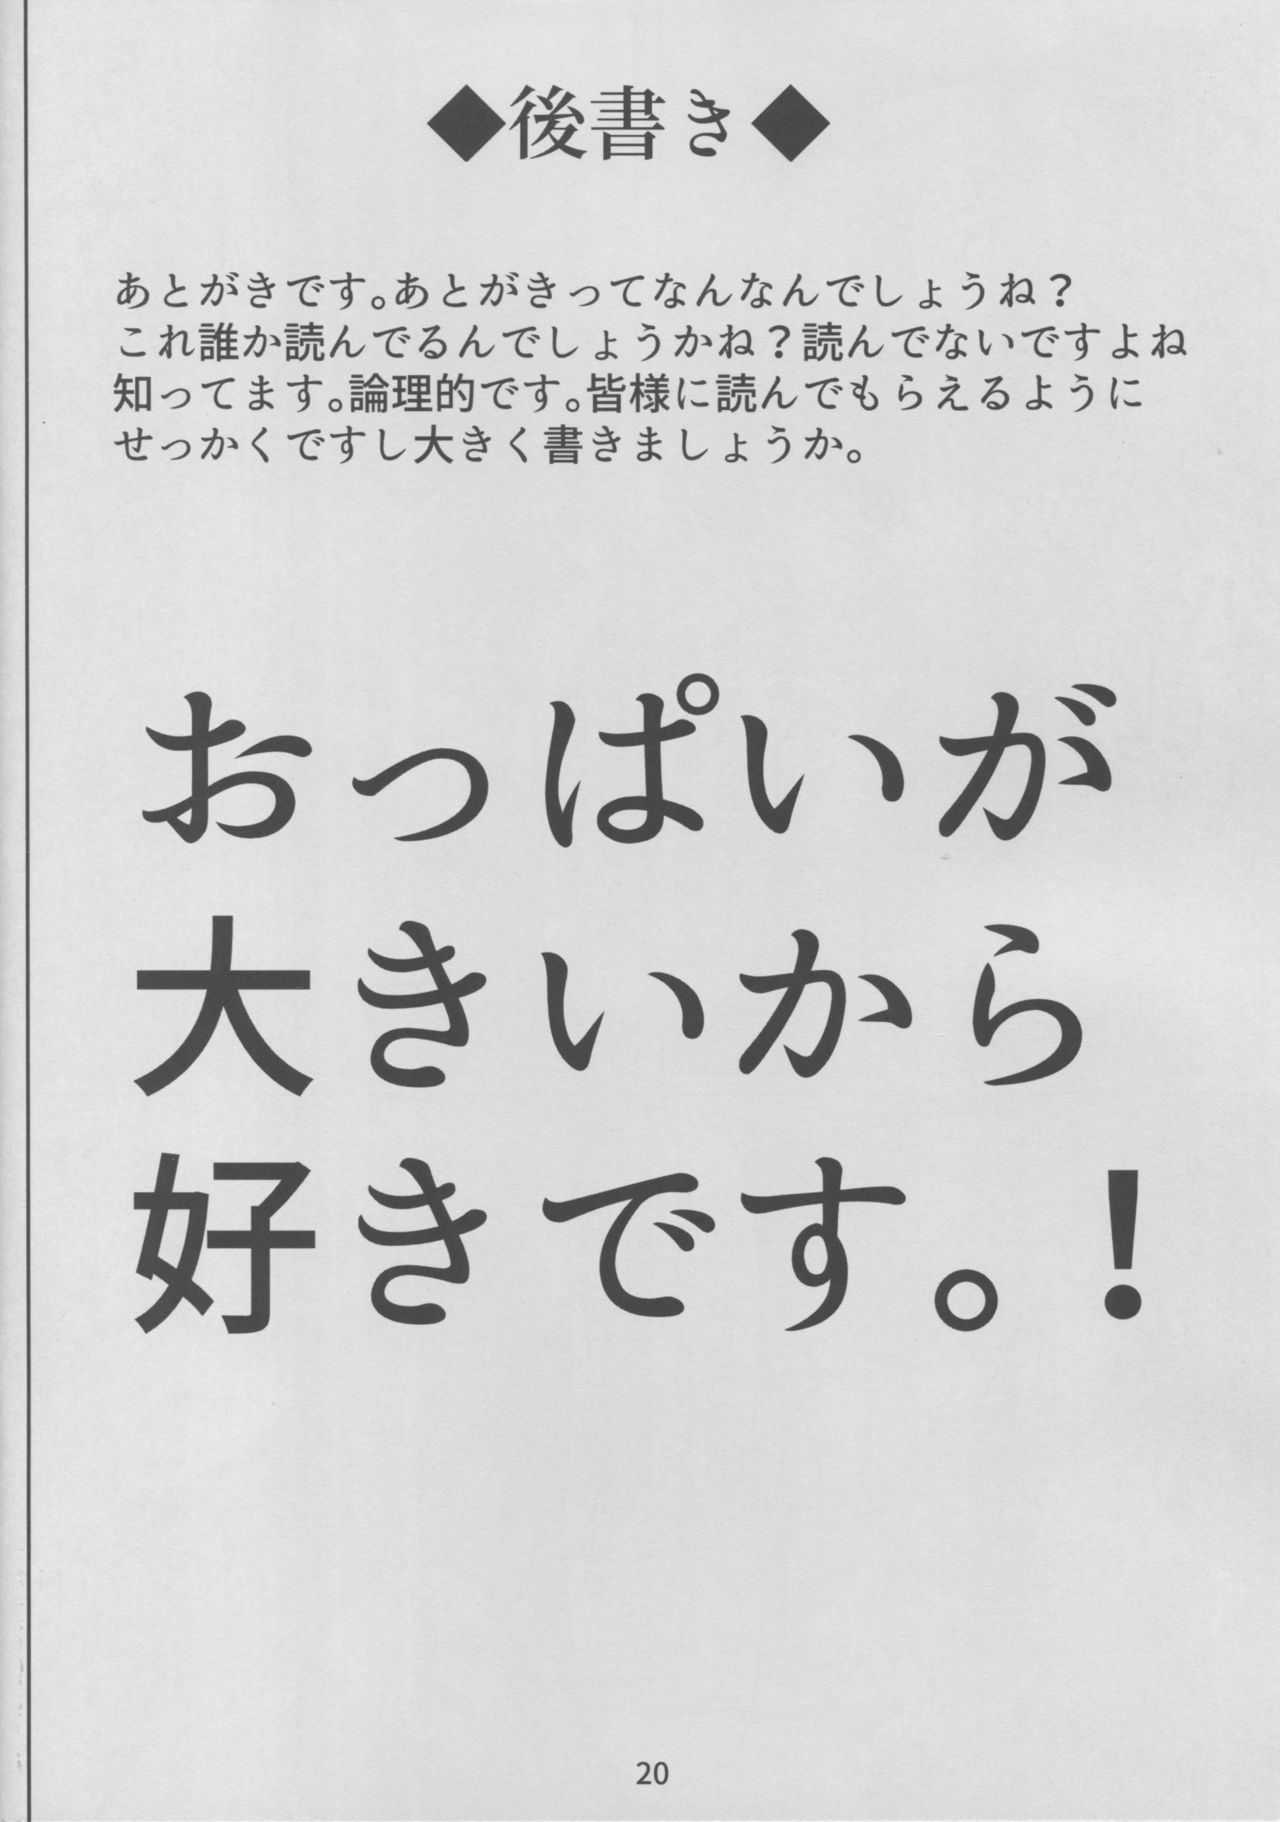 ◆後書き◆
あとがきです。あとがきってなんなんでしょうね？
これ誰か読んでるんでしょうかね？読んでないですよね
知ってます。論理的です。皆様に読んでもらえるように
せっかくですし大きく書きましょうか。
おっぱいが
大きいから
好きです。！
20